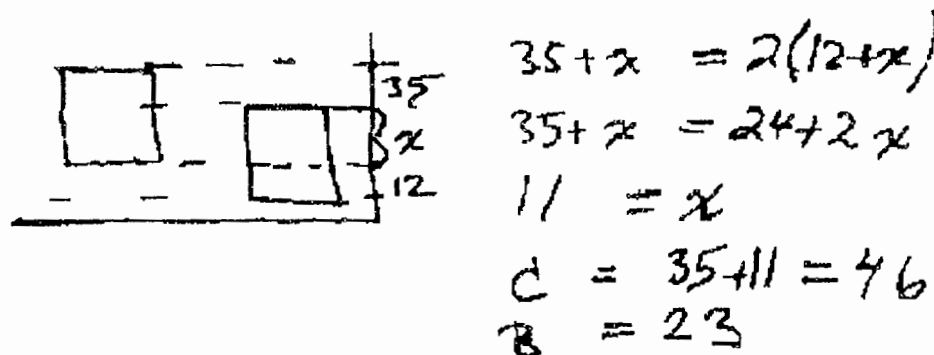 35
x
12
35+x = 2(12+x)
35+x = 24+2x
11 = x
C = 35+11 = 46
B = 23